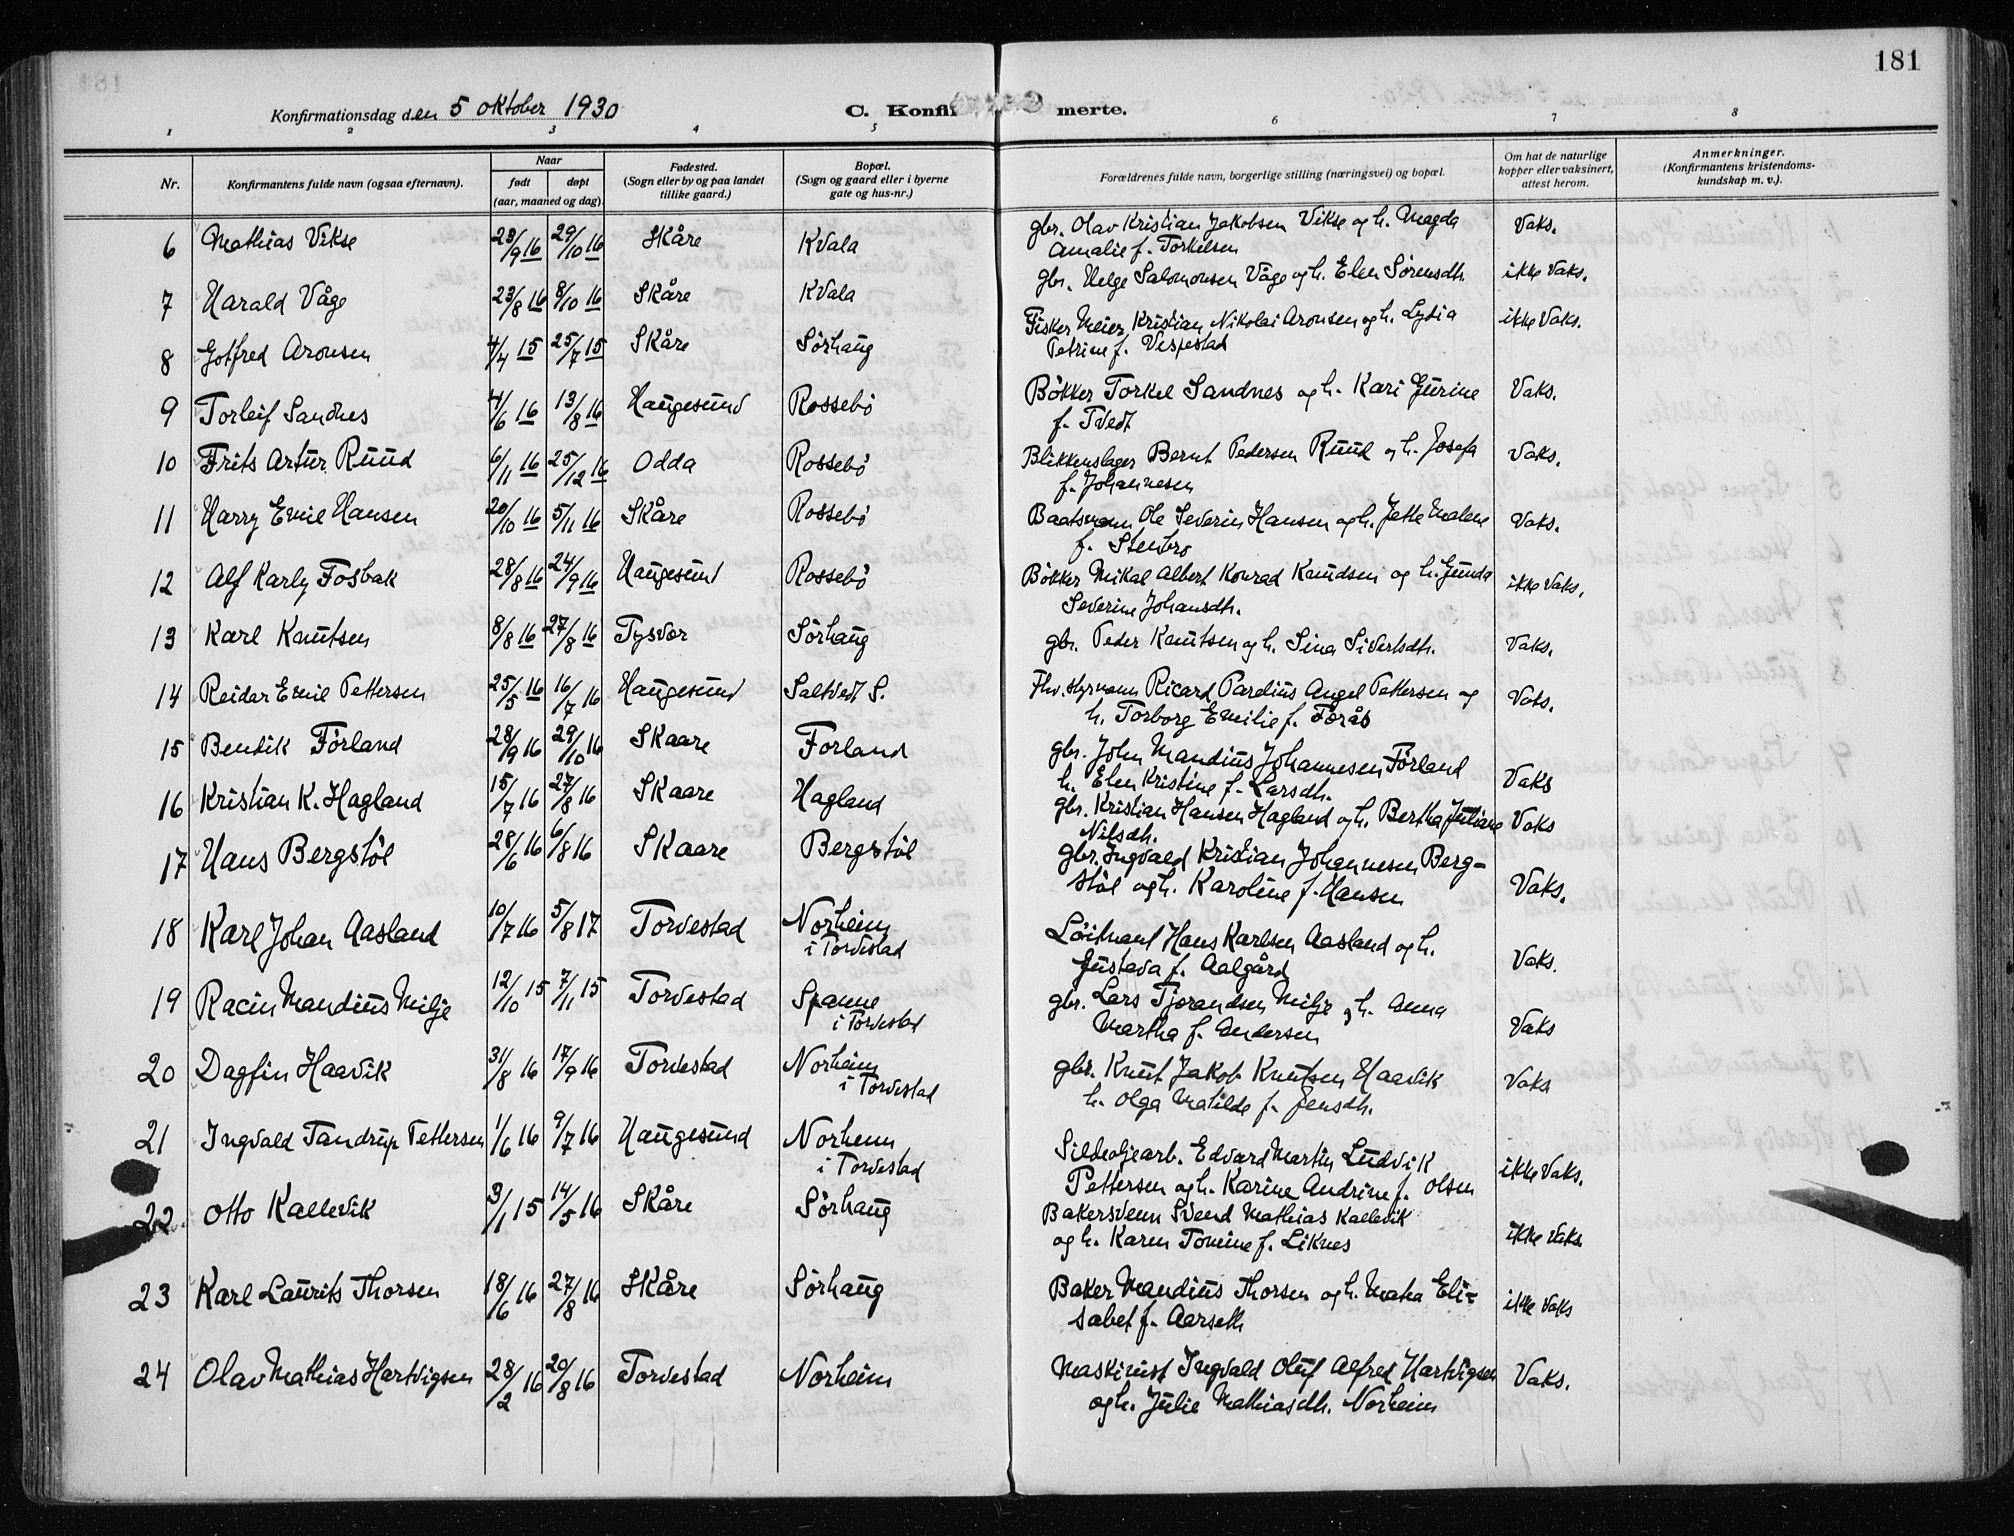 181
Konfirmationsdag den 5 oktober 1930
C. Konfir merte.
1 2 3 4 5 6 7 8
Nr. Konfirmantens fulde navn (ogsaa efternavn). Naar født døpt (aar, maaned og dag). Fødested. (Sogn eller by og paa landet tillike gaard.) Bopæl. (Sogn og gaard eller i byerne gate og hus-nr.) Forældrenes fulde navn, borgerlige stilling (næringsvei) og bopæl. Om hat de naturlige kopper eller vaksinert, attest herom. Anmerkninger. (Konfirmantens kristendoms-kundskap m. v.).
6 Mathias Vikse 23/9 16 29/10 16 Skåre Kvala gbr. Olav Kristian Jakobsen Vikse og h. Magda Vaks.
Amalie f. Torkilsen
7 Harald Våge 23/8 16 8/10 16 Skåre Kvala gbr. Helge Salomonsen Våge og h. Elen Sørensdh. ikke Vaks.
8 Gotfred Aronsen 4/4 15 25/7 15 Skåre Sørhaug Fisker Meier Kristian Nikolai Aronsen og h. Lydia ikke Vaks.
Petrine f. Vespestad
9 Torleif Sandnes 4/6 16 13/8 16 Haugesund Rossebø Bökker Torkel Sandnes og h. Kari Gurine Vaks.
f. Tvedt
10 Frits Artur Ruud 6/11 16 25/12 16 Odda Rossebø Blikkenslager Bernt Pedersen Ruud og h. Josefa Vaks.
f. Johannesen
11 Harry Emil Hansen 20/10 16 5/11 16 Skåre Rossebø Baatsmann Ole Severin Hansen og h. Jette Malene Vaks.
f. Stenbro
12 Alf Karly Fosbak 28/8 16 24/9 16 Haugesund Rossebø Bökker Mikal Albert Konrad Knudsen og h. Gunda ikke Vaks.
Severine Johansdh.
13 Karl Knutsen 8/8 16 27/8 16 Tysvær Sørhaug gbr. Peder Knutsen og h. Sina Sivertsdh. Vaks.
14 Reidar Emil Pettersen 25/5 16 16/7 16 Haugesund Saltvedt S. Fhv. styrmann Ricard Parelius Angel Pettersen og Vaks.
h. Torborg Emilie f. Førås
15 Bendik Førland 28/9 16 29/10 16 Skaare Førland gbr. John Mandius Johannesen Førland
h. Elen Kristine f. Larsdh. Vaks
16 Kristian K. Hagland 15/7 16 27/8 16 Skaare Hagland gbr. Kristian Hansen Hagland og h. Bertha Juliane Vaks
Nilsdh.
17 Hans Bergstøl 28/6 16 6/8 16 Skaare Bergstøl gbr. Ingvald Kristian Johannesen Berg-
støl og h. Karoline f. Hansen Vaks.
18 Karl Johan Aasland 10/7 16 5/8 17 Torvestad Norheim i Torvestad Løitnant Hans Karlsen Aasland og h.
Gustava f. Aalgård Vaks.
19 Racin Mandius Milje 12/10 15 7/11 15 Torvestad Spanne i Torvestad gbr. Lars Tjerandsen Milje og h. Anna
Martha f. Andersen Vaks
20 Dagfin Haavik 31/8 16 17/9 16 Torvestad Norheim i Torvestad gbr. Knut Jakob Knutsen Haavik Vaks
h. Olga Matilde f. Jensdh.
21 Ingvald Tandrup Pettersen 1/6 16 9/7 16 Haugesund Norheim i Torvestad Sildeoljearb. Edvard Martin Ludvik ikke Vaks.
Pettersen og h. Karine Andrine f. Olsen
22. Otto Kallevik 3/1 15 14/5 16 Skåre Sørhaug Bakersvenn Svend Mathias Kallevik
og h. Karen Tomine f. Liknes ikke Vaks
23 Karl Laurits Thorsen 18/6 16 27/8 16 Skåre Sørhaug Baker Mandius Thorsen og h. Maha Eli- ikke Vaks
sabet f. Aarseth
24 Olav Mathias Hartvigsen 28/2 16 20/8 16 Torvestad Norheim Maskinist Ingvald Oluf Alfred Hartvigsen Vaks.
og h. Julie Mathiasdh. Norheim